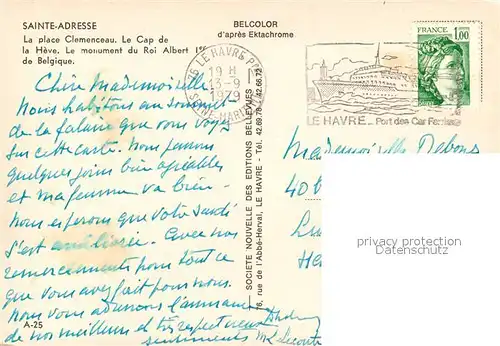 SAINTE-ADRESSE
La place Clemenceau. Le Cap de
la Hève. Le monument du Roi Albert 1er
de Belgique.
BELCOLOR
d'après Ektachrome
76 LE HAVRE
19 H
13-9
1979
SEINE-MARITIME
LE HAVRE _ Port des Car Ferries
FRANCE 1,00
Chère Mademoiselle.
Nous habitons au sommet
de la falaise que vous voyez
sur cette carte. Nous passons
quelques jours bien agréables
et ma femme va bien.
Nous espérons que votre santé
s'est améliorée. Avec nos
remerciements pour tout ce
que vous avez fait pour nous.
Nous vous adressons l'assurance
de nos meilleurs et très respectueux
sentiments
Lecomte
A-25
SOCIETE NOUVELLE DES EDITIONS BELLEVUES
76, rue de l'Abbé-Herval, LE HAVRE - Tél. 42.69.78 - 42.66.72
Mademoiselle Debons
40
privacy protection
Datenschutz